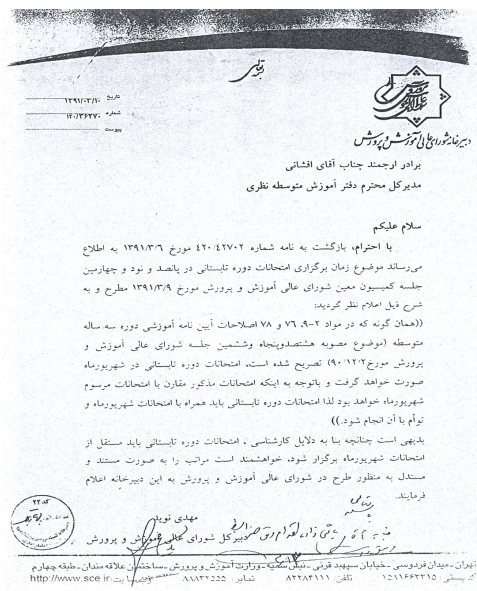 بسمه تعالی
تاریخ ۱۳۹۱/۰۳/۱۰
شماره ۱۲۰/۳۶۲۷۰
پیوست
دبیرخانه شورای عالی آموزش و پرورش
برادر ارجمند جناب آقای افشانی
مدیرکل محترم دفتر آموزش متوسطه نظری
سلام علیکم
با احترام، بازگشت به نامه شماره ۴۲۰/۴۲۷۰۲ مورخ ۱۳۹۱/۳/۶ به اطلاع
می‌رساند موضوع زمان برگزاری امتحانات دوره تابستانی در پانصد و نود و چهارمین
جلسه کمیسیون معین شورای عالی آموزش و پرورش مورخ ۱۳۹۱/۳/۹ مطرح و به
شرح ذیل اعلام نظر گردید:
((همان گونه که در مواد ۲-۹، ۷۶ و ۷۸ اصلاحات آیین نامه آموزشی دوره سه ساله
متوسطه (موضوع مصوبه هشتصدوپنجاه وششمین جلسه شورای عالی آموزش و
پرورش مورخ ۹۰/۱۲/۲) تصریح شده است، امتحانات دوره تابستانی در شهریورماه
صورت خواهد گرفت و باتوجه به اینکه امتحانات مذکور مقارن با امتحانات مرسوم
شهریورماه خواهد بود لذا امتحانات دوره تابستانی باید همراه با امتحانات شهریورماه و
توأم با آن انجام شود.))
بدیهی است چنانچه بنا به دلایل کارشناسی ، امتحانات دوره تابستانی باید مستقل از
امتحانات شهریورماه برگزار شود، خواهشمند است مراتب را به صورت مستند و
مستدل به منظور طرح در شورای عالی آموزش و پرورش به این دبیرخانه اعلام
فرمایند.
مهدی نوید
دبیرکل شورای عالی آموزش و پرورش
کد ۲۲
تهران-میدان فردوسی -خیابان سپهبد قرنی -نبش سمیه -وزارت آموزش و پرورش -ساختمان علاقه مندان -طبقه چهارم
کد پستی: ۱۵۱۱۶۶۳۳۱۵ تلفن: ۸۲۲۸۴۱۱۱ نمابر: ۸۸۸۳۲۵۵۵ سایت: http://www.sce.ir